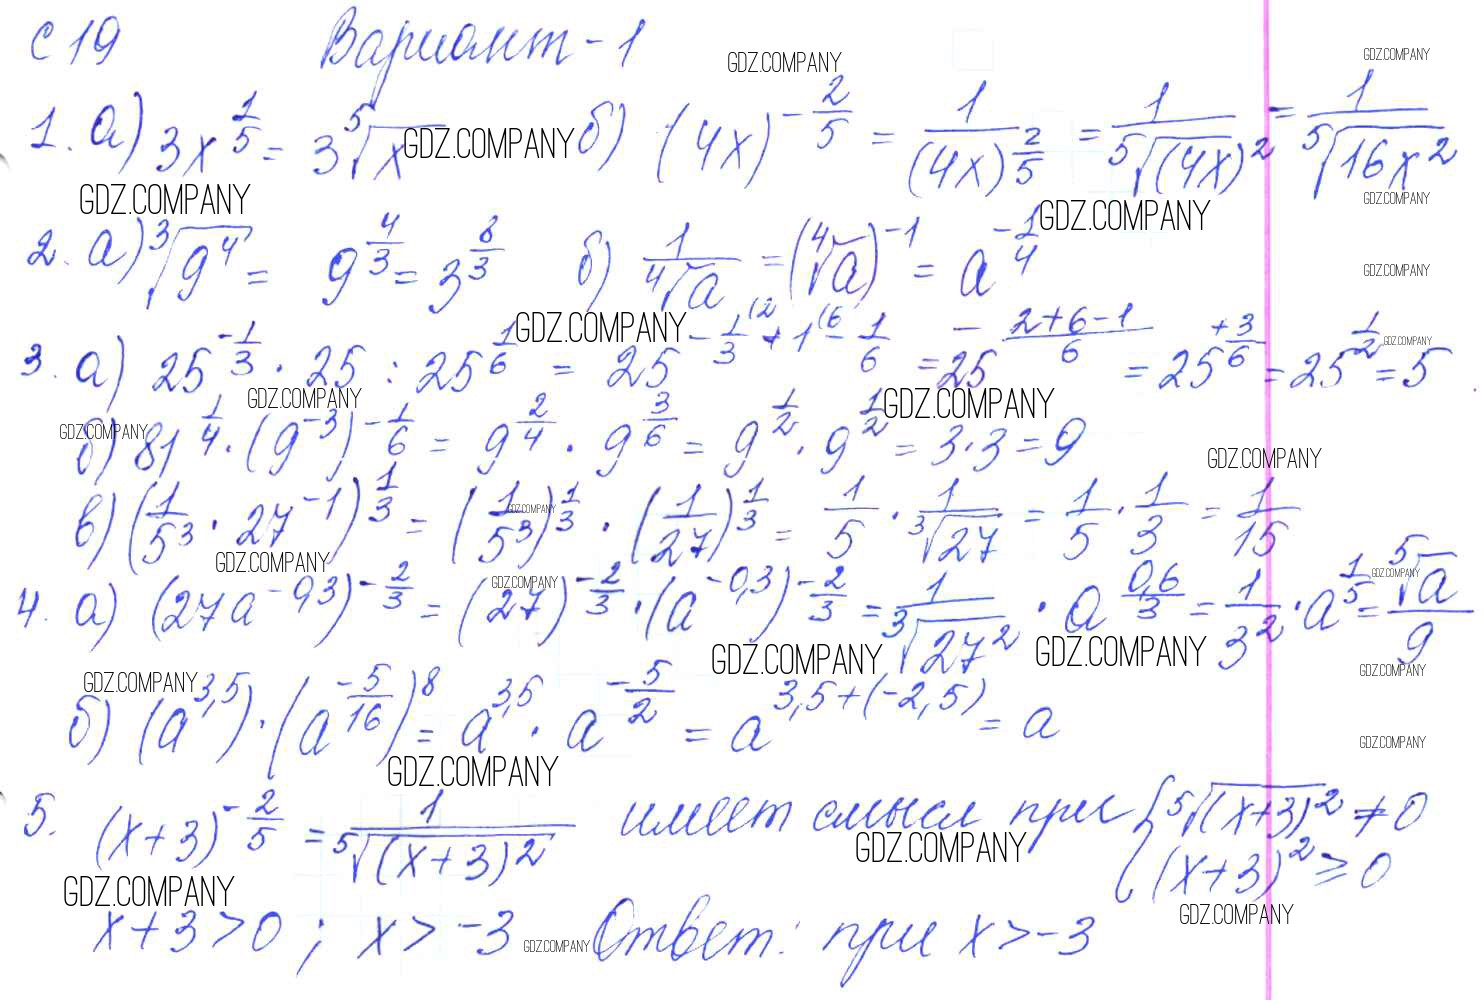 С 19 Вариант - 1
GDZ.COMPANY GDZ.COMPANY
1. а) 3x^(1/5) = 3⁵√x GDZ.COMPANY б) (4x)^(-2/5) = 1/(4x)^(2/5) = 1/⁵√(4x)² = 1/⁵√16x²
GDZ.COMPANY GDZ.COMPANY GDZ.COMPANY
2. а) ³√9⁴ = 9^(4/3) = 3^(8/3) б) 1/⁴√a = (⁴√a)^(-1) = a^(-1/4)
GDZ.COMPANY GDZ.COMPANY GDZ.COMPANY
3. а) 25^(-1/3) · 25 : 25^(1/6) = 25^(-1/3(2 + 1(6 - 1/6) = 25^(-(2+6-1)/6) = 25^(+3/6) = 25^(1/2) = 5
GDZ.COMPANY GDZ.COMPANY GDZ.COMPANY
б) 81^(1/4) · (9^(-3))^(-1/6) = 9^(2/4) · 9^(3/6) = 9^(1/2) · 9^(1/2) = 3·3 = 9
GDZ.COMPANY
в) (1/5³ · 27^(-1))^(1/3) = (1/5³)^(1/3) · (1/27)^(1/3) = 1/5 · 1/³√27 = 1/5 · 1/3 = 1/15
GDZ.COMPANY GDZ.COMPANY GDZ.COMPANY GDZ.COMPANY
4. а) (27a^(-0,3))^(-2/3) = (27)^(-2/3) · (a^(-0,3))^(-2/3) = 1/³√27² · a^(0,6/3) = 1/3² · a^(1/5) = ⁵√a/9
GDZ.COMPANY GDZ.COMPANY GDZ.COMPANY GDZ.COMPANY
б) (a^(3,5)) · (a^(-5/16))^8 = a^(3,5) · a^(-5/2) = a^(3,5+(-2,5)) = a
GDZ.COMPANY GDZ.COMPANY
5. (x+3)^(-2/5) = 1/⁵√(x+3)² имеет смысл при { ⁵√(x+3)² ≠ 0
(x+3)² ≥ 0
GDZ.COMPANY GDZ.COMPANY GDZ.COMPANY
x+3>0 ; x > -3 GDZ.COMPANY Ответ: при x > -3